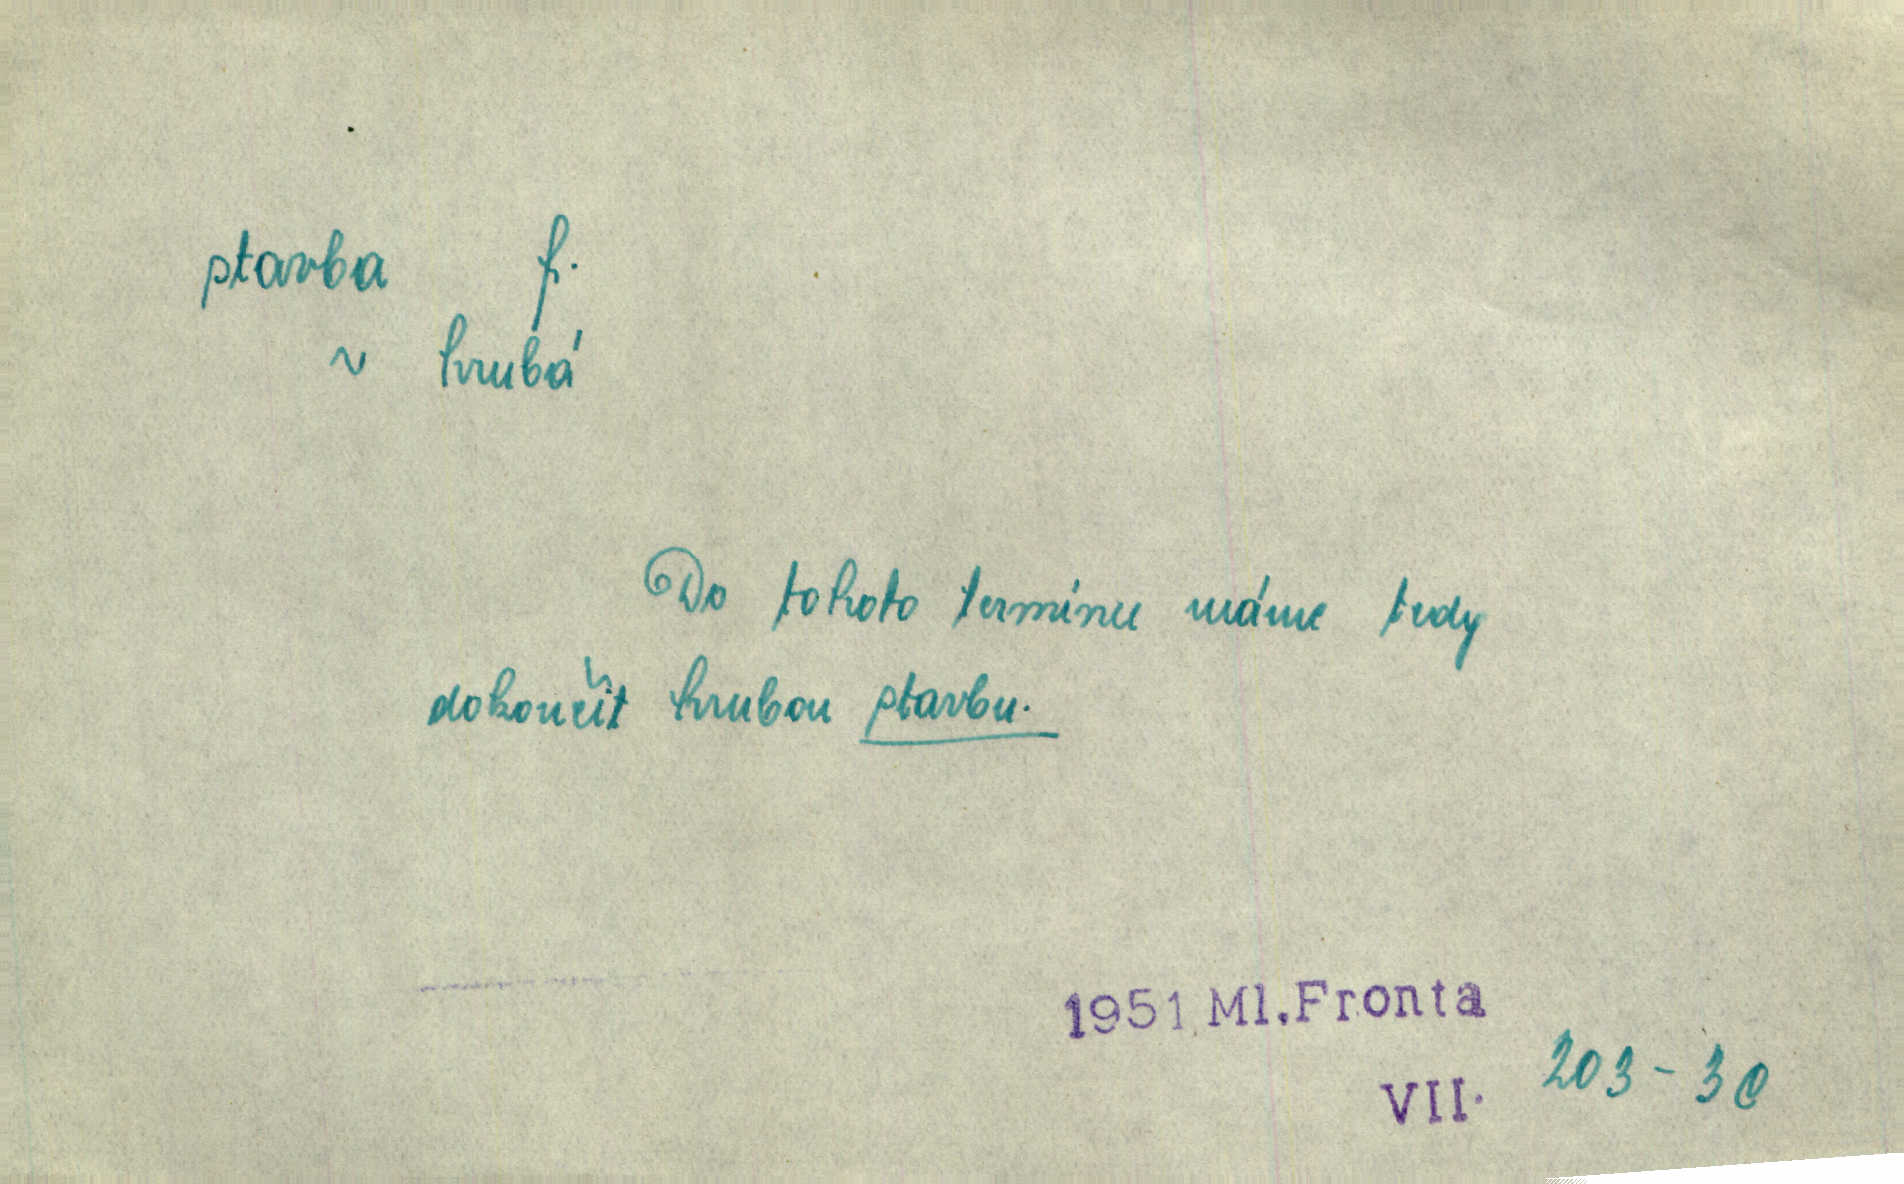 stavba f.
~ hrubá
Do tohoto termínu máme tedy
dokončit hrubou stavbu.
1951 Ml. Fronta
VII. 203-3c